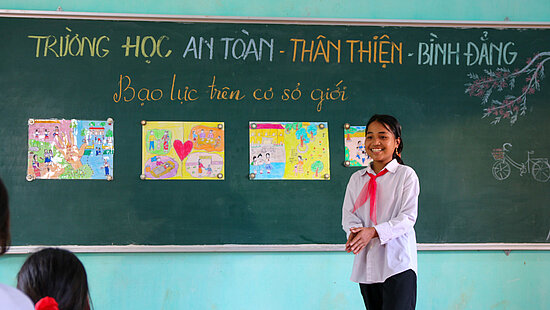 TRƯỜNG HỌC AN TOÀN - THÂN THIỆN - BÌNH ĐẲNG
Bạo lực trên cơ sỏ giới